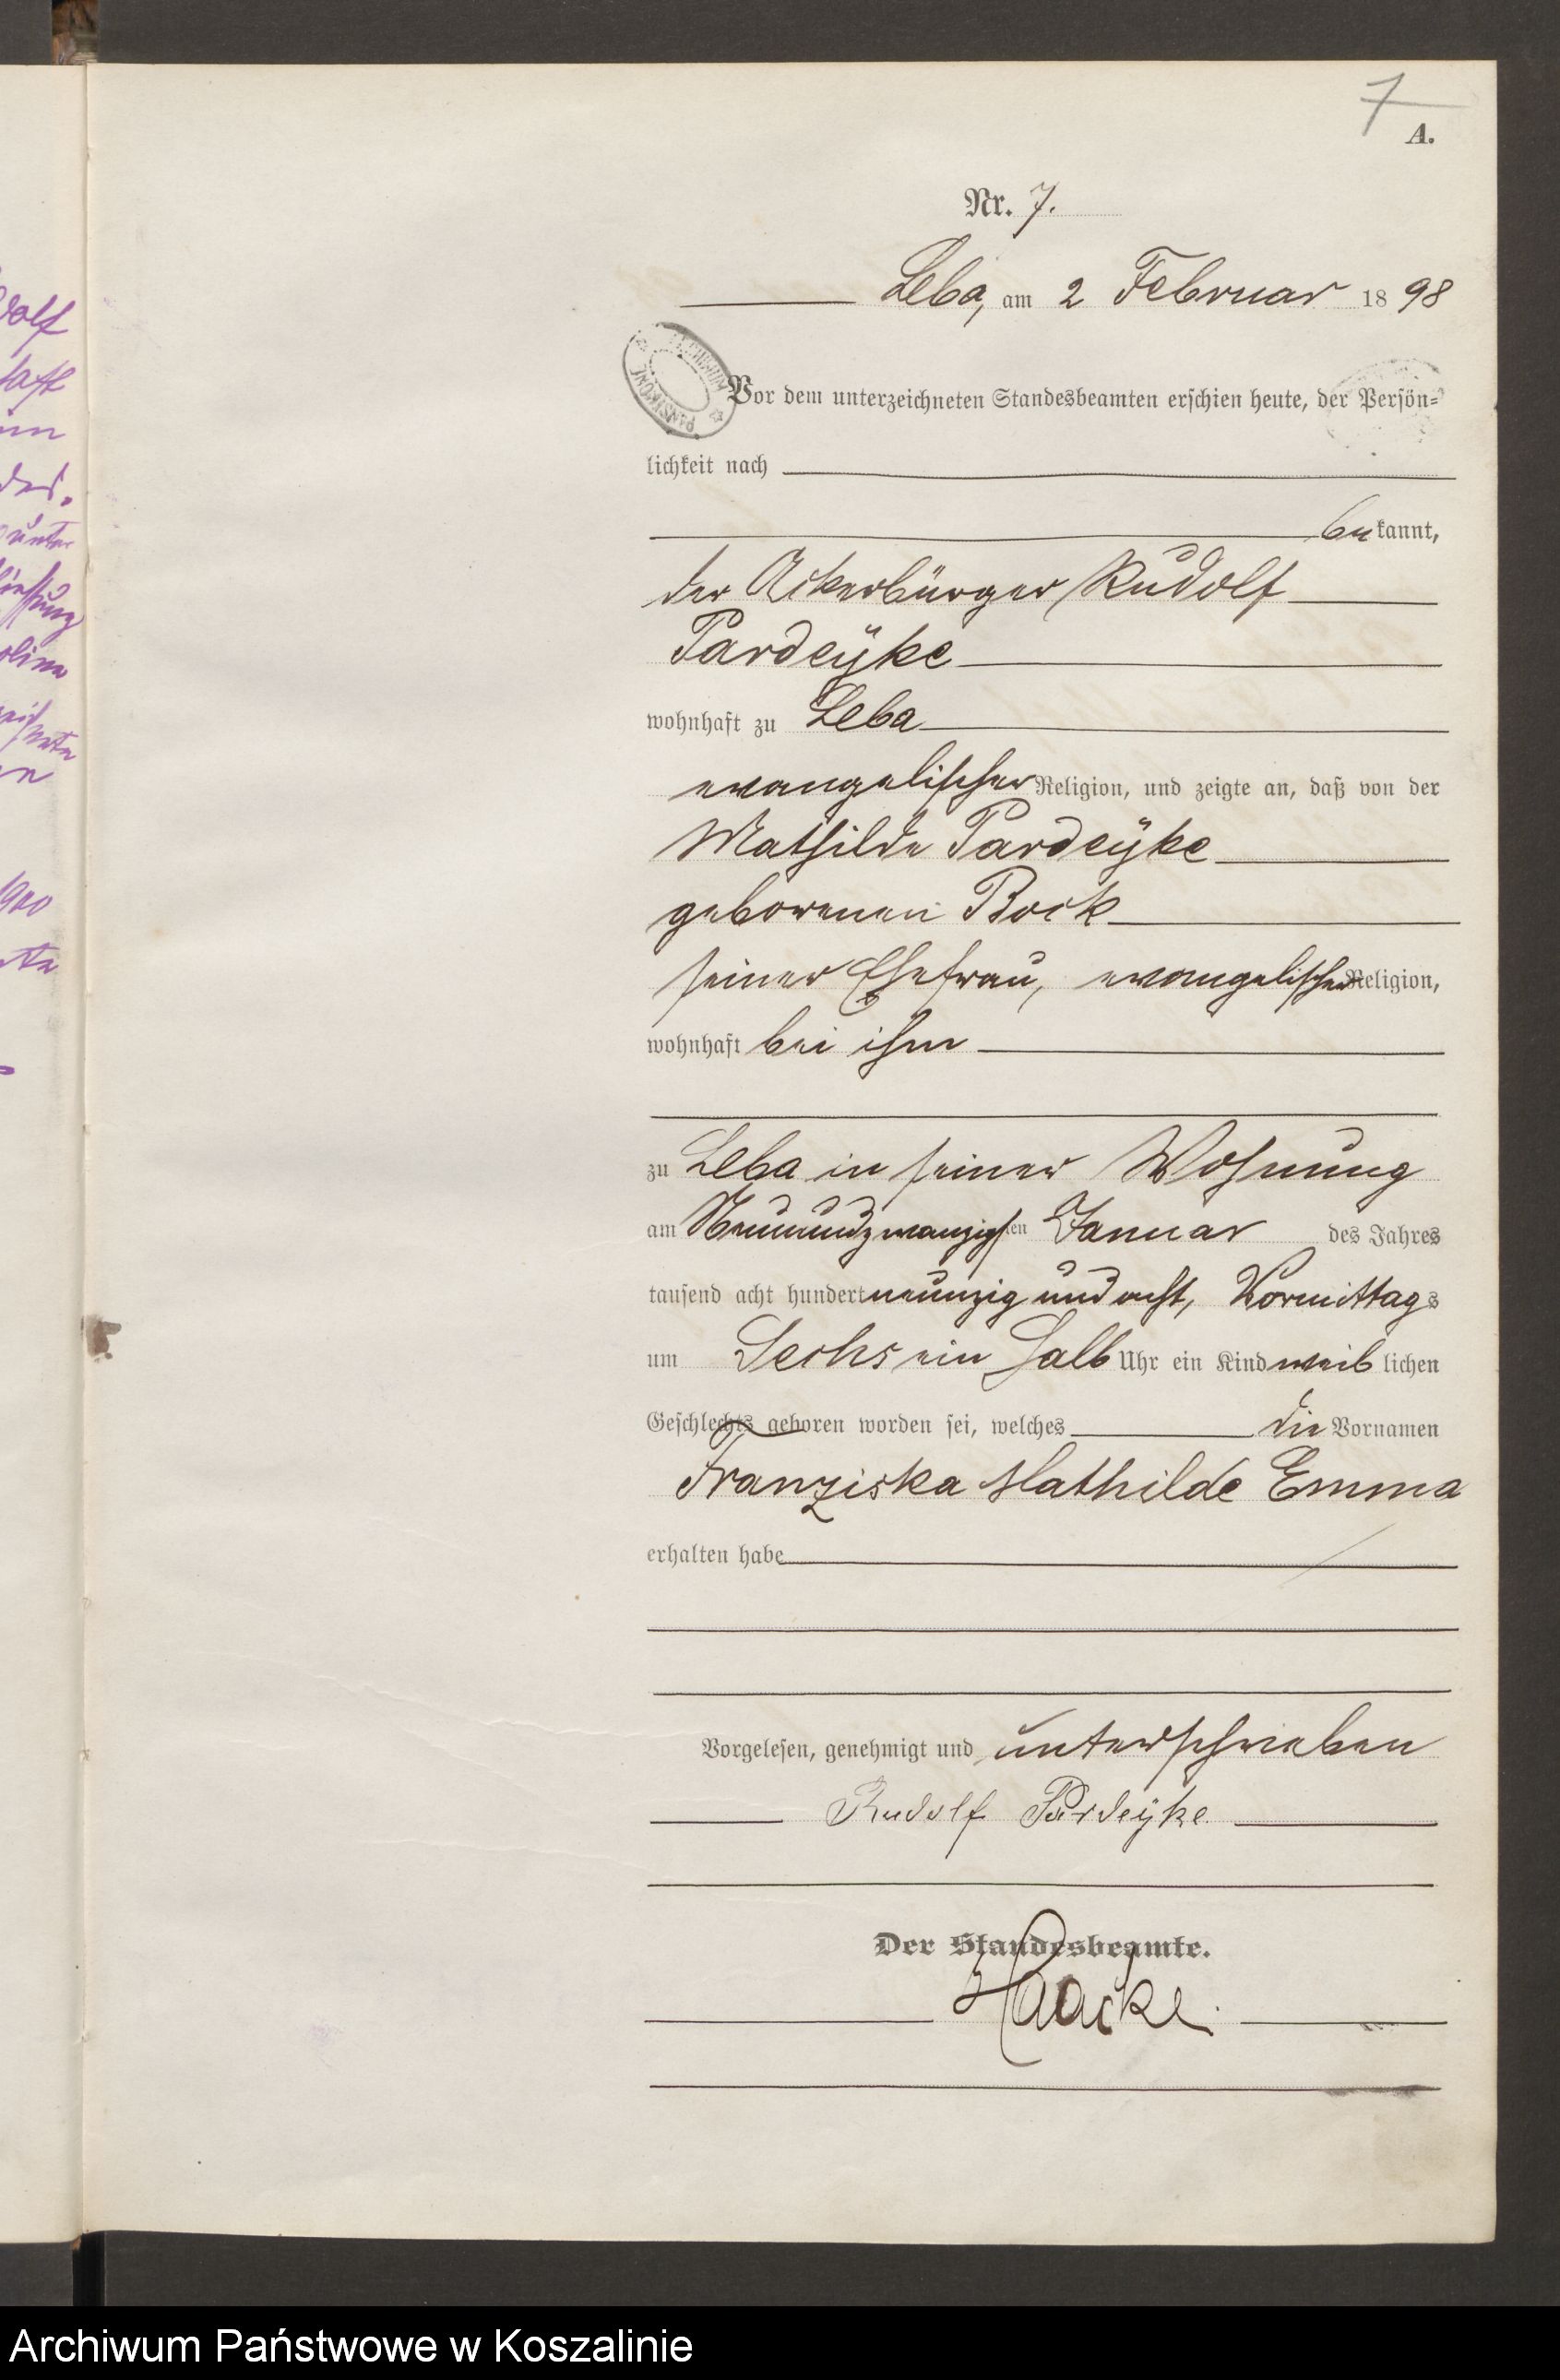 7
A.
Nr. 7.
Leba, am 2 Februar 1898
Vor dem unterzeichneten Standesbeamten erschien heute, der Persön-
lichkeit nach
bekannt,
der Ackerbürger Rudolf
Pardeÿke
wohnhaft zu Leba
evangelischer Religion, und zeigte an, daß von der
Mathilde Pardeÿke
geborenen Bock
seiner Ehefrau, evangelischer Religion,
wohnhaft bei ihm
zu Leba in seiner Wohnung
am Neunundzwanzigsten Januar des Jahres
tausend acht hundert neunzig und acht, Vormittags
um Sechs ein halb Uhr ein Kind weiblichen
Geschlechts geboren worden sei, welches die Vornamen
Franziska Mathilde Emma
erhalten habe
Vorgelesen, genehmigt und unterschrieben
Rudolf Pardeÿke
Der Standesbeamte.
Haacke.
Archiwum Państwowe w Koszalinie